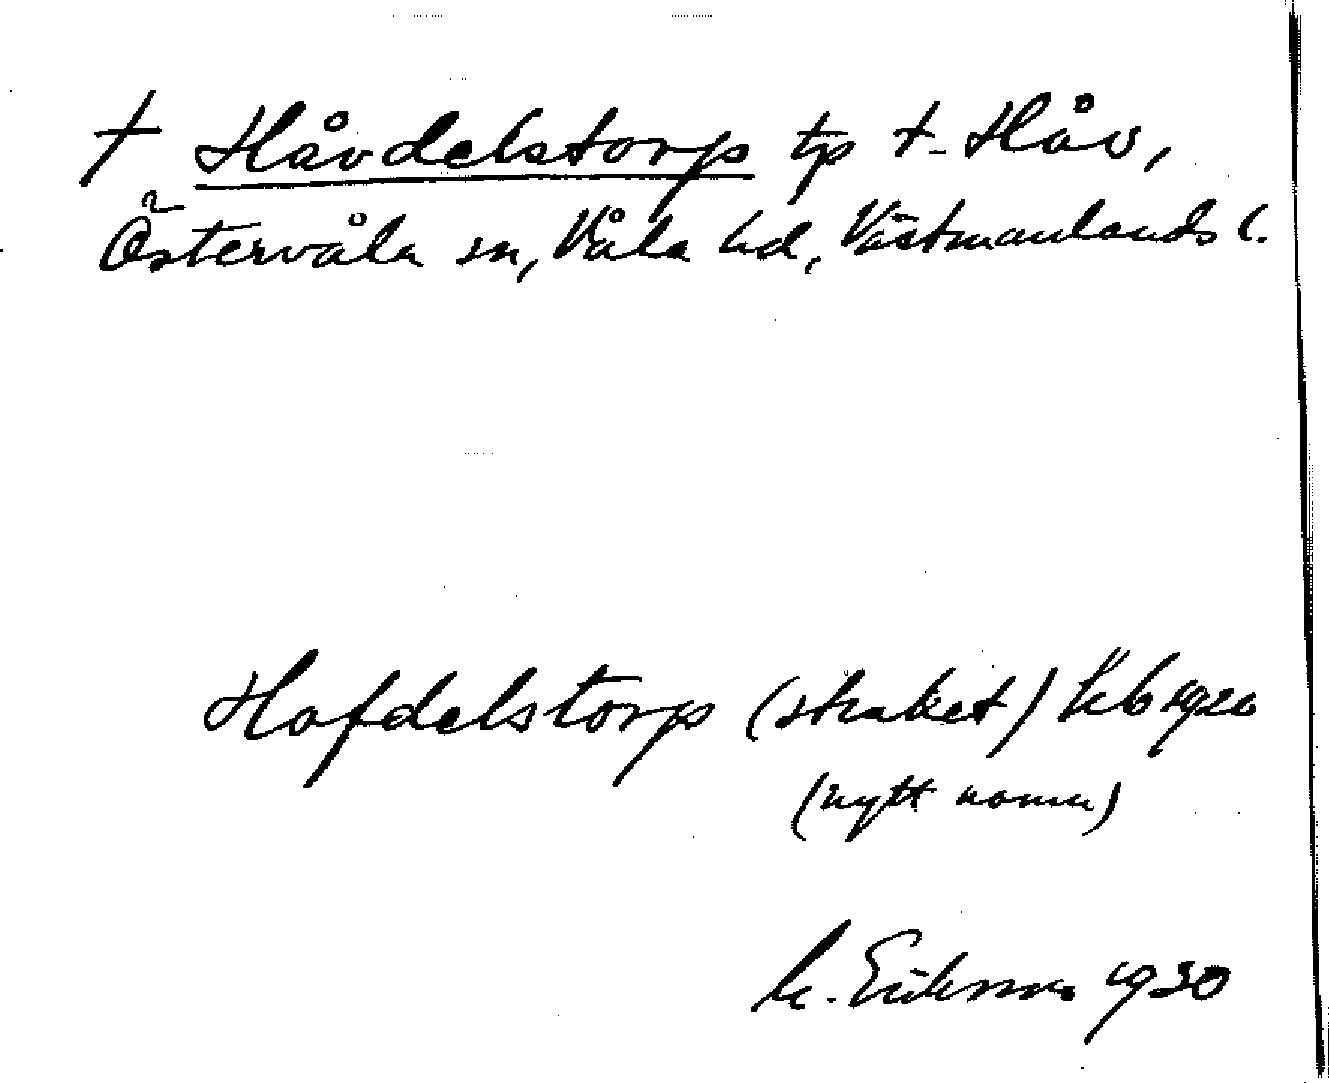 † Håvdelstorp tp t. Håv,
Östervåla sn, Våla hd, Västmanlands l.
Hafdelstorp (straket) Kb 1920
(nytt namn)
M. Eriksson 1930